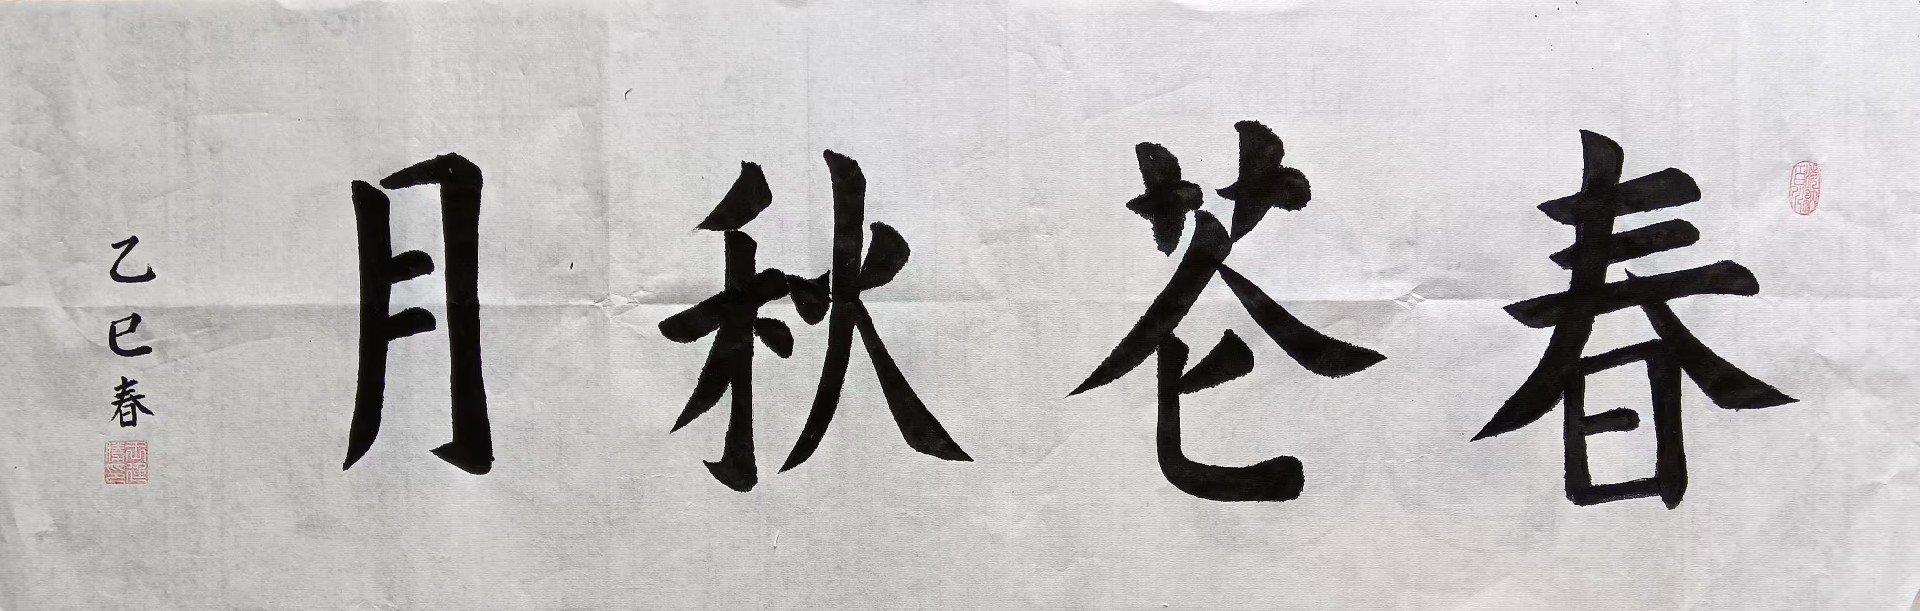 春花秋月
乙巳春